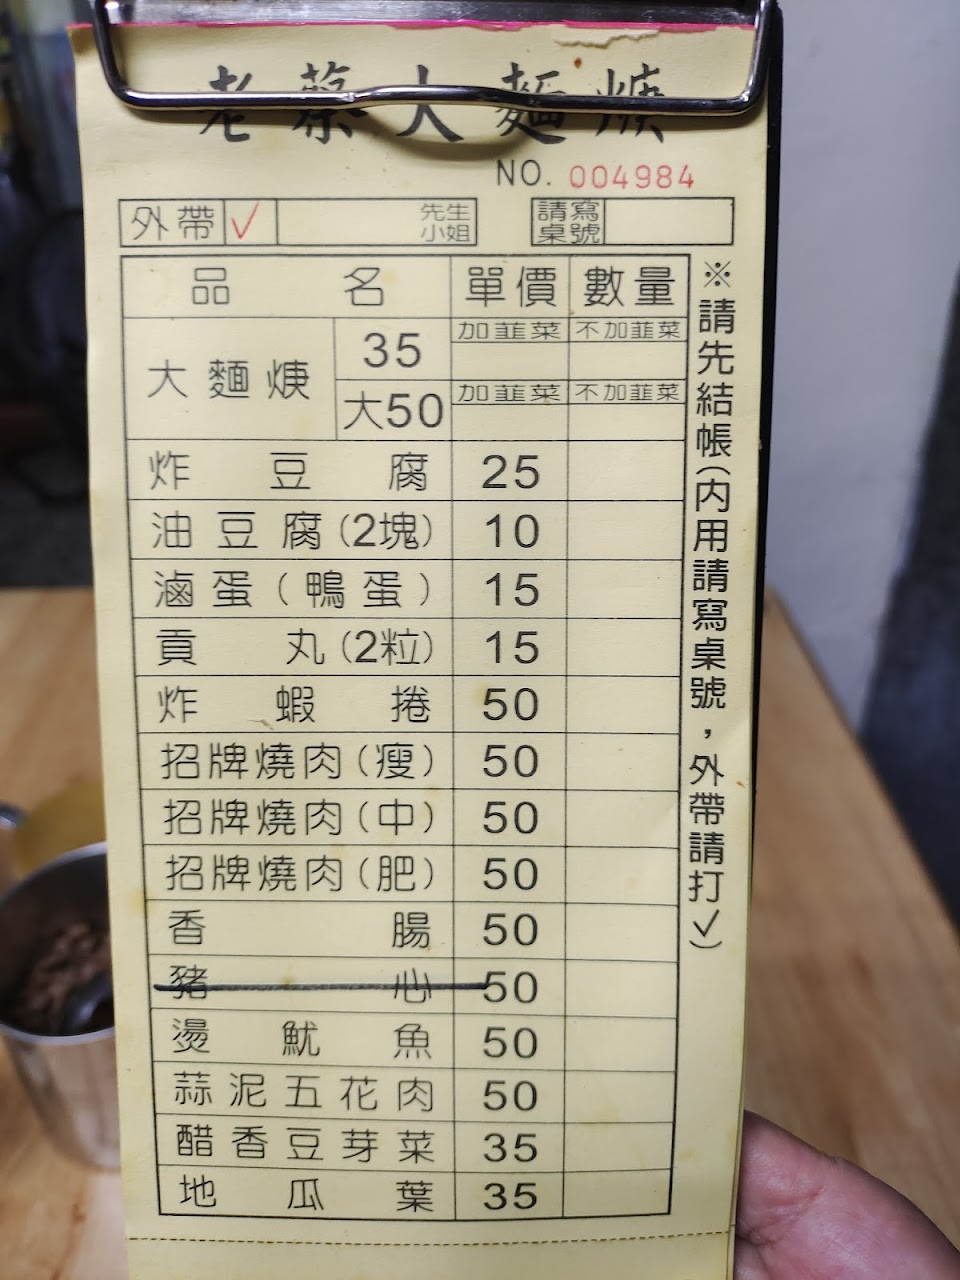 老蔡大麵焿
NO. 004984
外帶 ✓ 先生 小姐 請寫桌號
品名 單價 數量
大麵焿 35 加韮菜 不加韮菜
大50 加韮菜 不加韮菜
炸豆腐 25
油豆腐(2塊) 10
滷蛋(鴨蛋) 15
貢丸(2粒) 15
炸蝦捲 50
招牌燒肉(瘦) 50
招牌燒肉(中) 50
招牌燒肉(肥) 50
香腸 50
豬心 50
燙魷魚 50
蒜泥五花肉 50
醋香豆芽菜 35
地瓜葉 35
※請先結帳(內用請寫桌號，外帶請打✓)